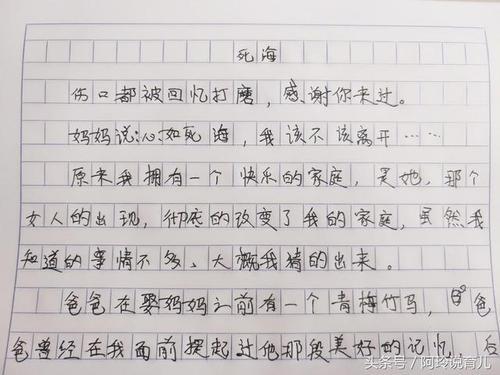 死海
伤口都被回忆打磨，感谢你来过。
妈妈说：心如死海，我该不该离开……
原来我拥有一个快乐的家庭，是她，那个
女人的出现，彻底的改变了我的家庭，虽然我
知道的事情不多、大概我猜的出来。
爸爸在娶妈妈之前有一个青梅竹马，爸
爸曾经在我面前提起过他那段美好的记忆，后
头条号／阿玲说育儿